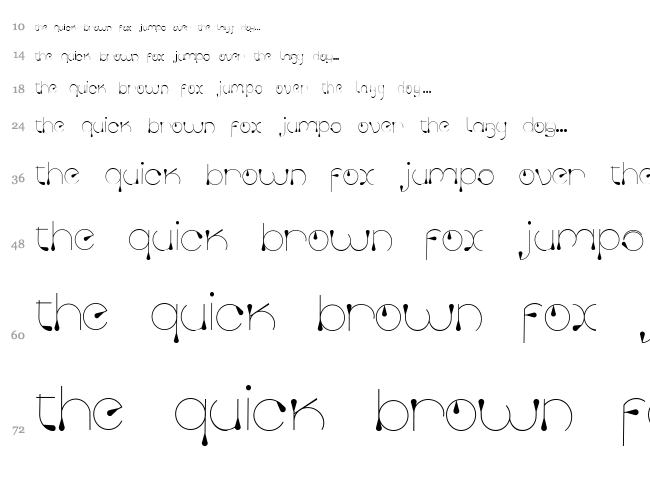 10 the quick brown fox jumpo over the lazy dog...
14 the quick brown fox jumpo over the lazy dog...
18 the quick brown fox jumpo over the lazy dog...
24 the quick brown fox jumpo over the lazy dog...
36 the quick brown fox jumpo over the
48 the quick brown fox jumpo
60 the quick brown fox j
72 the quick brown f